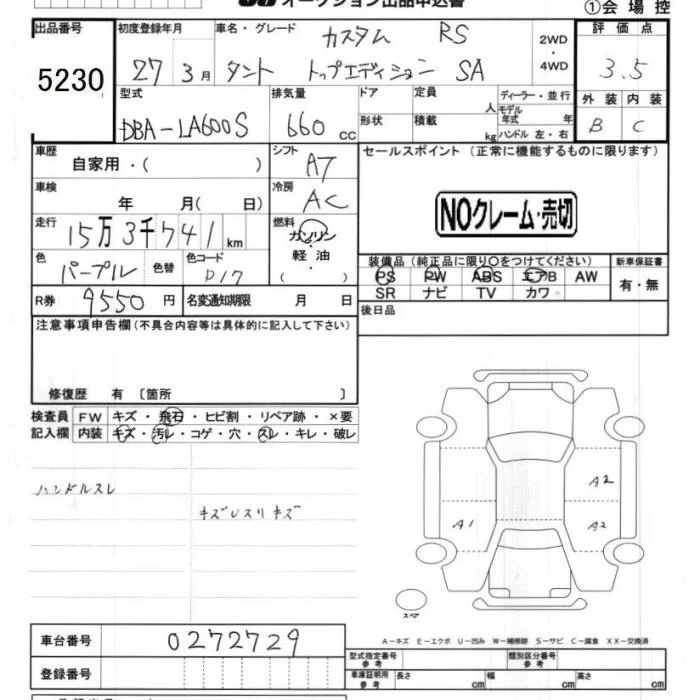 オークション出品申込書
①会場控
出品番号
5230
初度登録年月
27 3月
車名・グレード
カスタム RS
タント トップエディション SA
2WD
・
4WD
評価点
3.5
外装 内装
B C
型式
DBA-LA600S
排気量
660 cc
ドア
形状
定員
人
積載
kg
ディーラー・並行
モデル
年式 年
ハンドル 左・右
車歴
自家用・( )
シフト
A7
車検
年 月( 日)
冷房
AC
走行
15万3千741 km
燃料
ガソリン
・
軽油
・
( )
色
パープル
色替
色コード
P17
R券
9550 円
名変通知期限 月 日
セールスポイント (正常に機能するものに限ります)
NOクレーム・売切
装備品 (純正品に限り○をつけてください)
PS PW ABS エアB AW
SR ナビ TV カワ
新車保証書
有・無
後日品
注意事項申告欄 (不具合内容等は具体的に記入して下さい)
修復歴 有 〔箇所 〕
検査員 FW キズ・飛石・ヒビ割・リペア跡・×要
記入欄 内装 キズ・汚レ・コゲ・穴・スレ・キレ・破レ
ハンドルスレ
キズレスリキズ
A2
A1
A2
スペア
A-キズ E-エクボ U-凹み W-補修跡 S-サビ C-腐食 XX-交換済
車台番号
0272729
登録番号
型式指定番号
参考
類別区分番号
参考
車庫証明用
参考
長さ cm
幅 cm
高さ cm